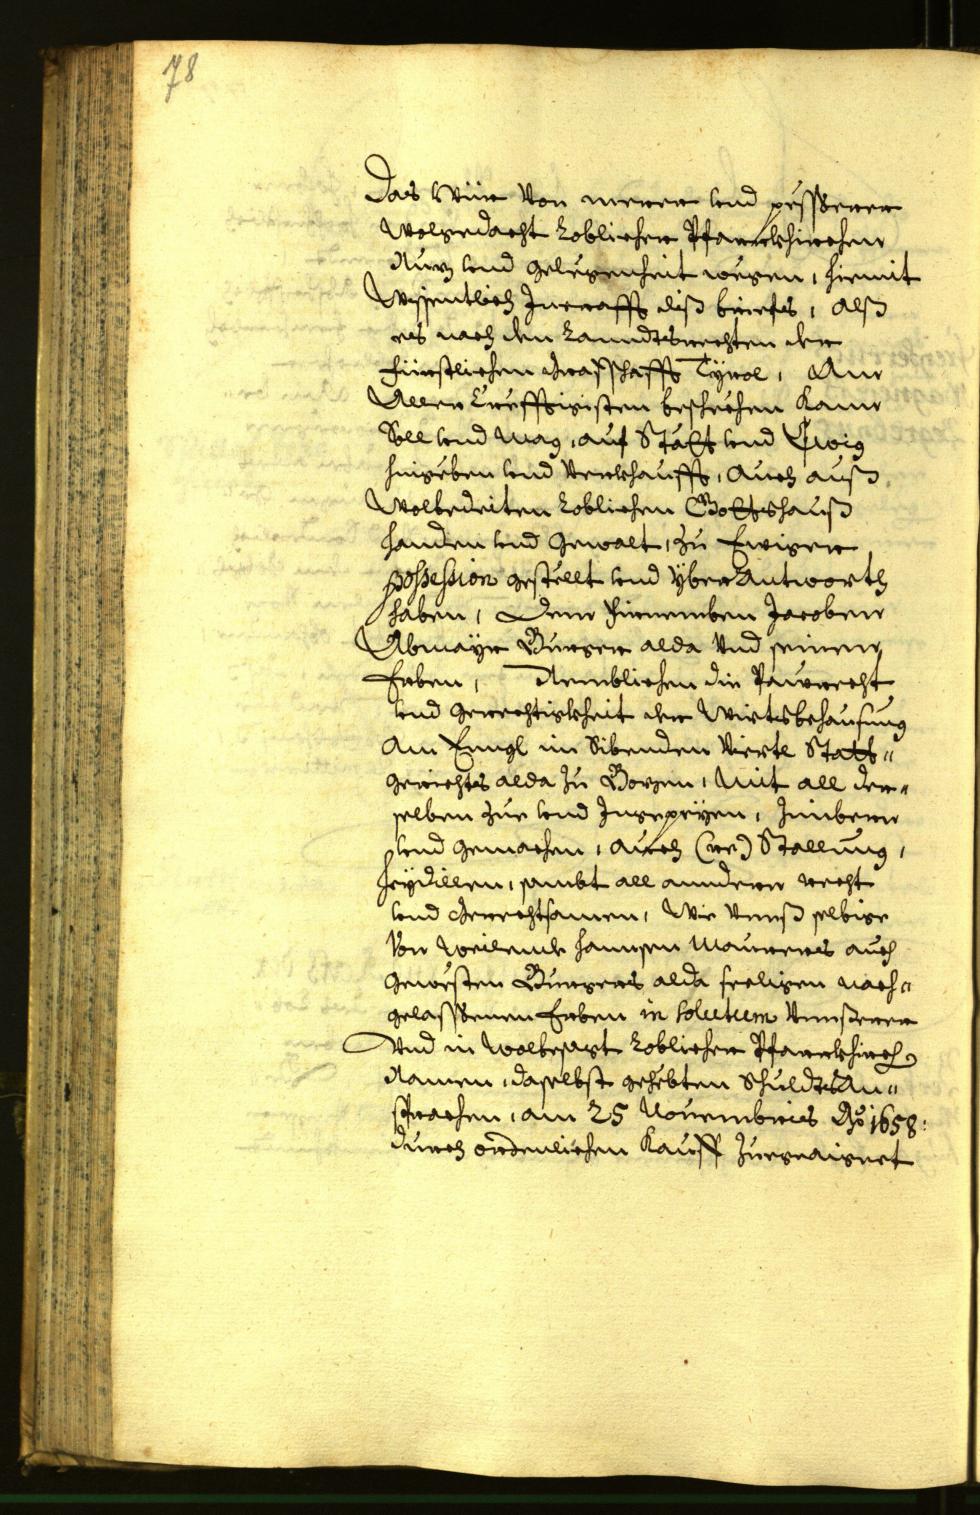 78
Das Wür von merer und pesserer
Wolgedacht Loblicher Pfarrkhirchen
Nuz und gelegenheit wegen, hiemit
Wissentlich Incrafft diß briefs, Alß
es nach den Lanndtsrechten der
Fürstlichen Grafschafft Tÿrol, Am
Aller Crefftigisten beschechen kann
Soll und mag, auf Stätt und Ewig
hingeben und verkhaufft, Auch auß
Wolbedeiten Loblichen Gottshauß
handen und Gewalt, zu Ewiger
possession gestellt und yberAntworth
haben, Dem Fürnemben Jacoben
Abmaÿr Burger alda Und seinen
Erben, Nemblichen die Paurecht
und Gerechtigkheit der Wirtsbehausung
Am Enngl im Sibenden Viertl Statt-
gerichts alda zu Bozen, Mit all der-
selben Zue und Ingepeÿen, Zimbern
und Gemachen, Auch (rev) Stallung,
heÿdillen, sambt all anndern recht
und Gerechtsamen, Wie Unnß selbige
Von Weilendt Hannsen Maurers auch
Gewesten Burgers alda seeligen nach-
gelassenen Erben in solutum Unnserer
Und in Wolbesagt Loblicher Pfarrkhirch
Namen, daselbst gehebten SchuldtsAn-
sprachen, am 25 Novembris Ao 1658:
durch ordenlichen Kauff zuegeaignet